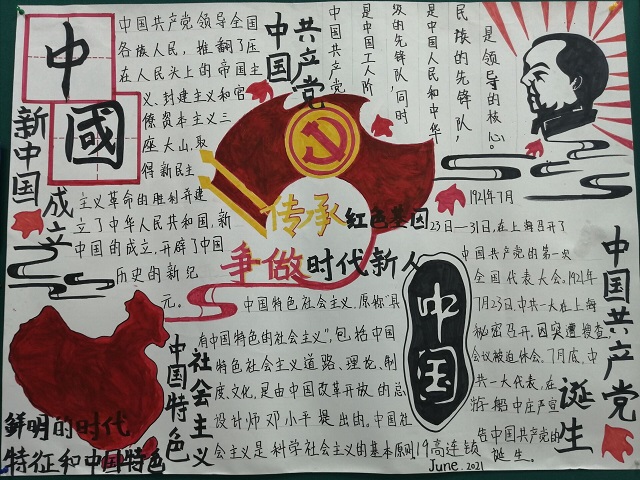 中國
中国共产党领导全国
各族人民，推翻了压
在人民头上的帝国主
义、封建主义和官
僚资本主义三
座大山，取
得新民主
主义革命的胜利并建
立了中华人民共和国，新
中国的成立，开辟了中国
历史的新纪
元。
新中国
成立
中国
共产党
中国共产党
是中国工人阶
级的先锋队，同时
是中国人民和中华
民族的先锋队，
是领导的核心。
传承红色基因
争做时代新人
1921年7月
23日—31日，在上海召开了
中国共产党的第一次
全国代表大会，1921年
7月23日中共一大在上海
秘密召开，因突遭搜查，
会议被迫休会，7月底，中
共一大代表，在
游船中庄严宣
告中国共产党的
诞生。
中国共产党
诞生
中国
中国特色社会主义，原称“具
有中国特色的社会主义”，包括中国
特色社会主义道路、理论、制
度、文化，是由中国改革开放的总
设计师邓小平提出的，中国社
会主义是科学社会主义的基本原则
社会主义
中国特色
鲜明的时代
特征和中国特色
19高连锁
June.2021